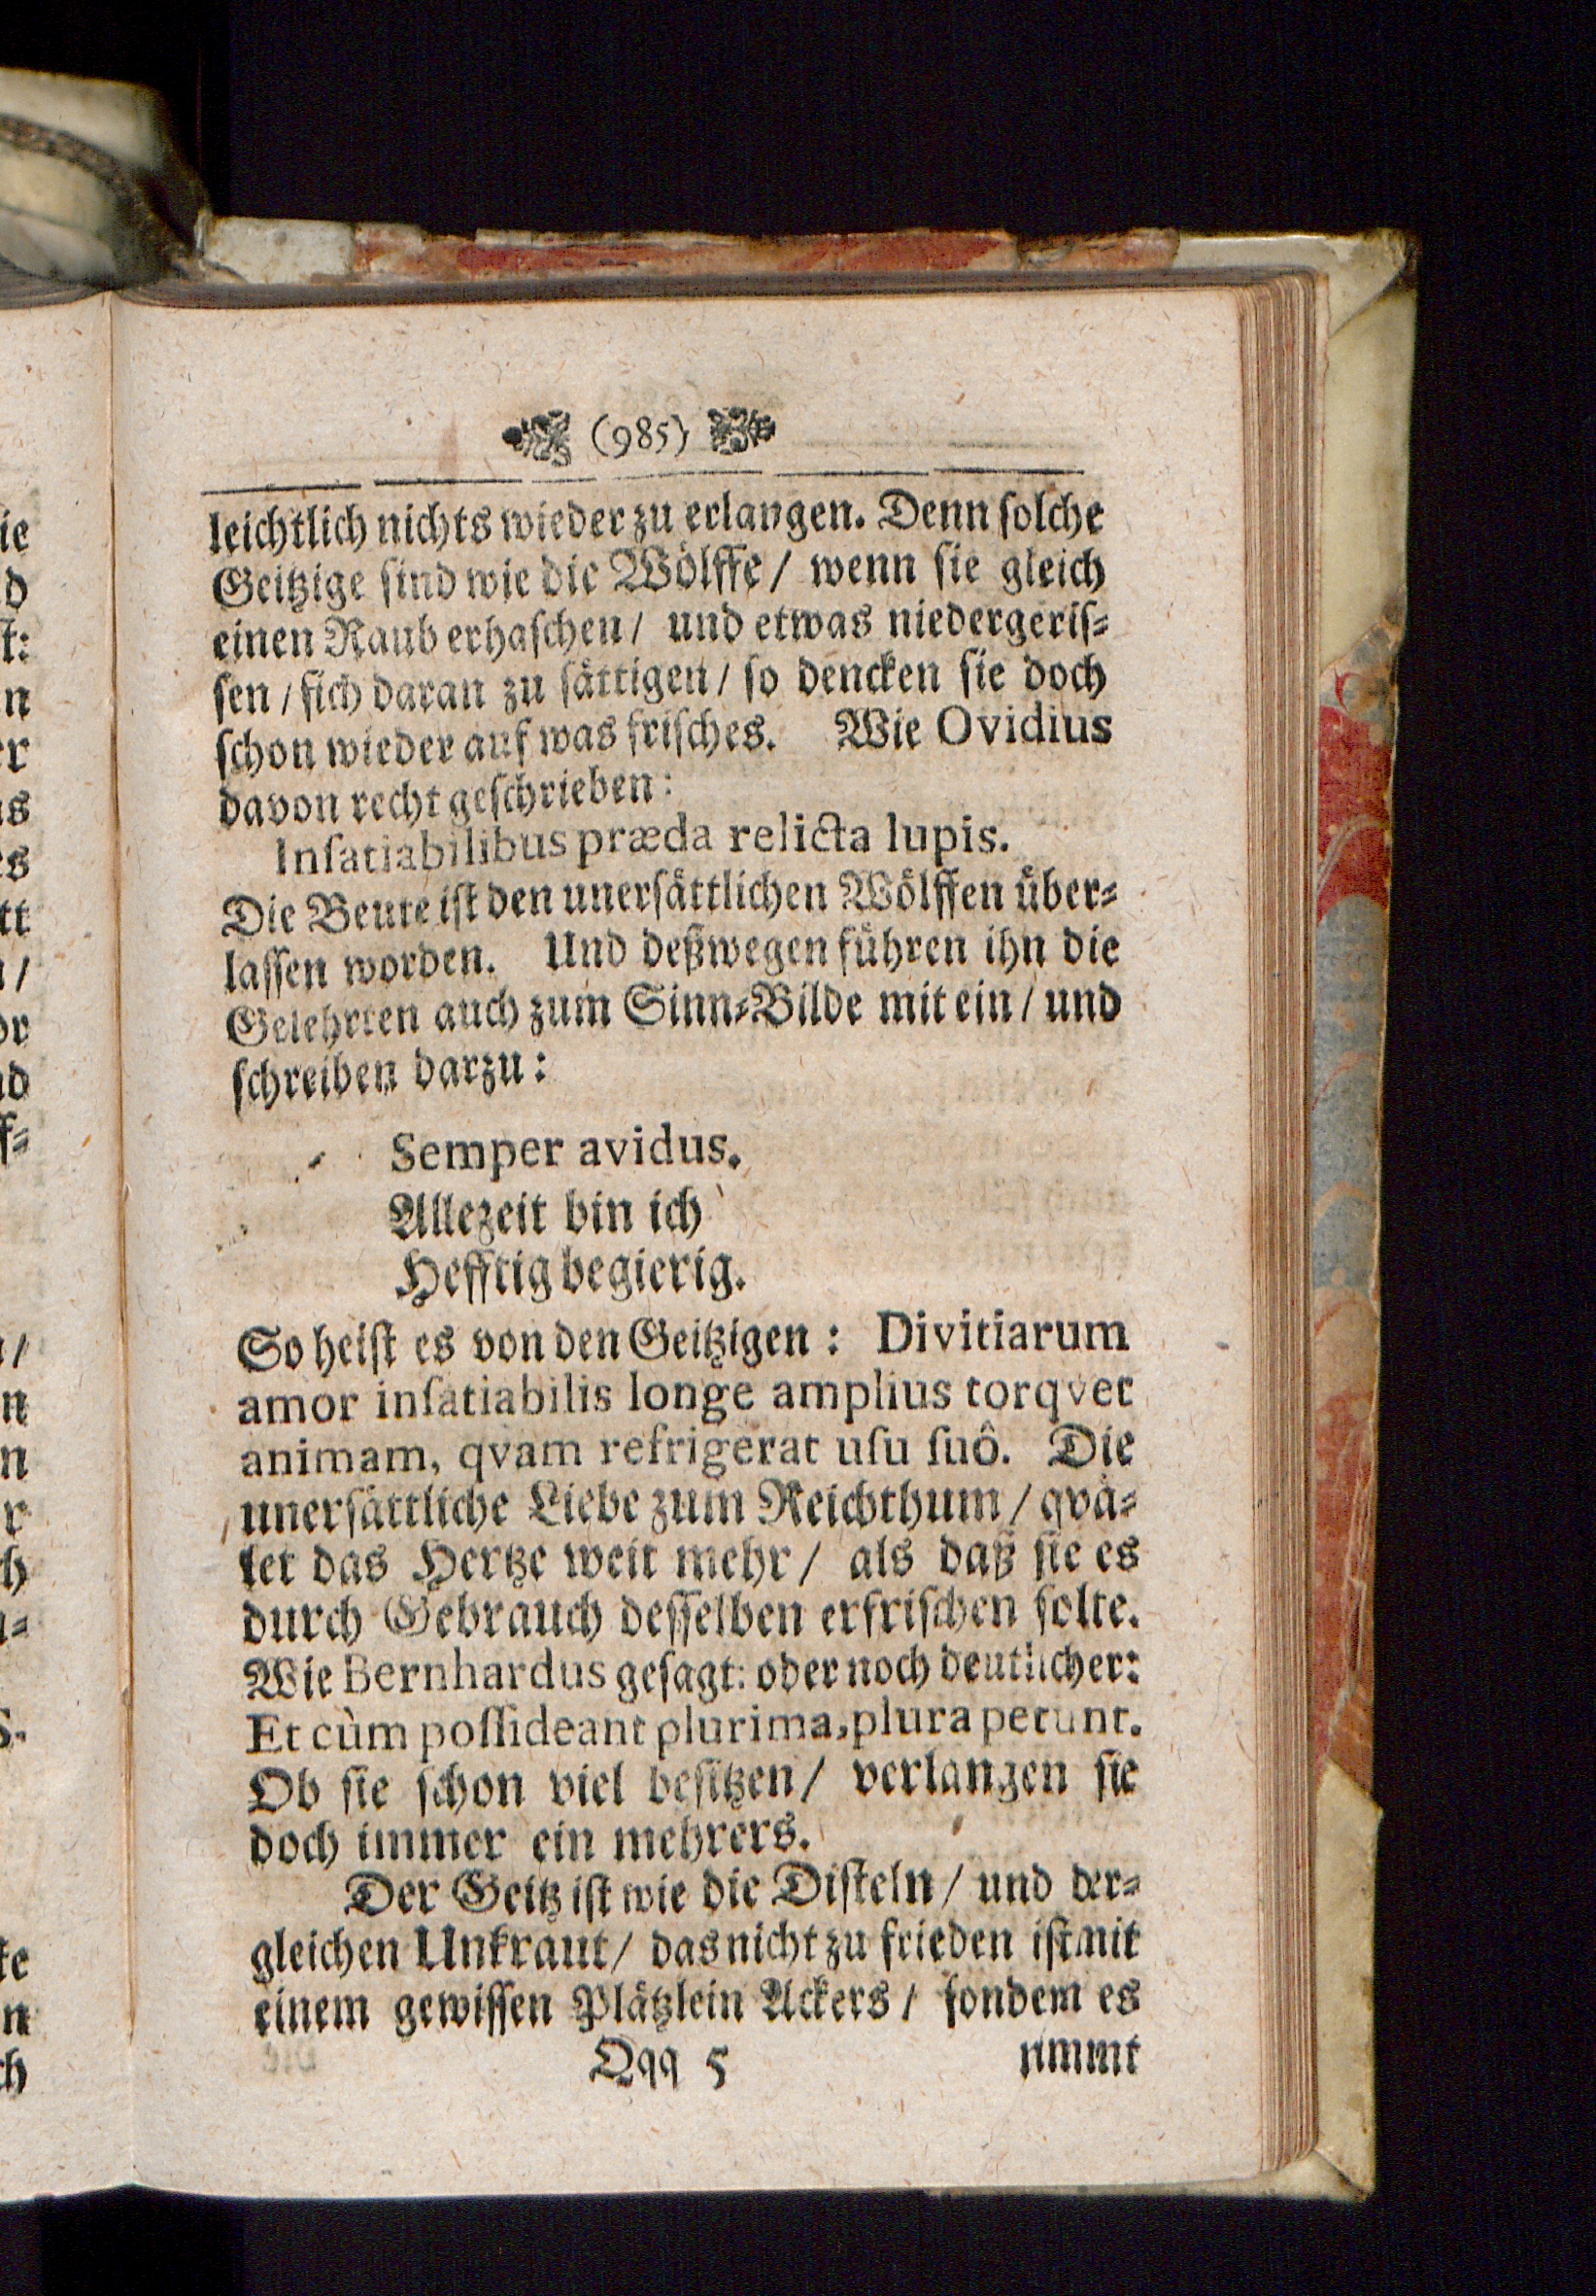 (985)
leichtlich nichts wieder zu erlangen. Denn ſolche
Geitzige ſind wie die Wölffe / wenn ſie gleich
einen Raub erhaſchen / und etwas niedergeriſ⸗
ſen / ſich daran zu ſättigen / ſo dencken ſie doch
ſchon wieder auf was friſches. Wie Ovidius
davon recht geſchrieben:
Inſatiabilibus præda relicta lupis.
Die Beute iſt den unerſättlichen Wölffen über⸗
laſſen worden. Und deßwegen führen ihn die
Gelehrten auch zum Sinn⸗Bilde mit ein / und
ſchreiben darzu:
Semper avidus.
Allezeit bin ich
Hefftig begierig.
So heiſt es von den Geitzigen: Divitiarum
amor inſatiabilis longe amplius torqvet
animam, qvam refrigerat uſu ſuô. Die
unerſättliche Liebe zum Reichthum / qvä⸗
let das Hertze weit mehr / als daß ſie es
durch Gebrauch deſſelben erfriſchen ſolte.
Wie Bernhardus geſagt: oder noch deutlicher:
Et cùm poſſideant plurima, plura petunt.
Ob ſie ſchon viel beſitzen / verlangen ſie
doch immer ein mehrers.
Der Geitz iſt wie die Diſteln / und der⸗
gleichen Unkraut / das nicht zu frieden iſt mit
einem gewiſſen Plätzlein Ackers / ſondern es
Qqq 5 nimmt